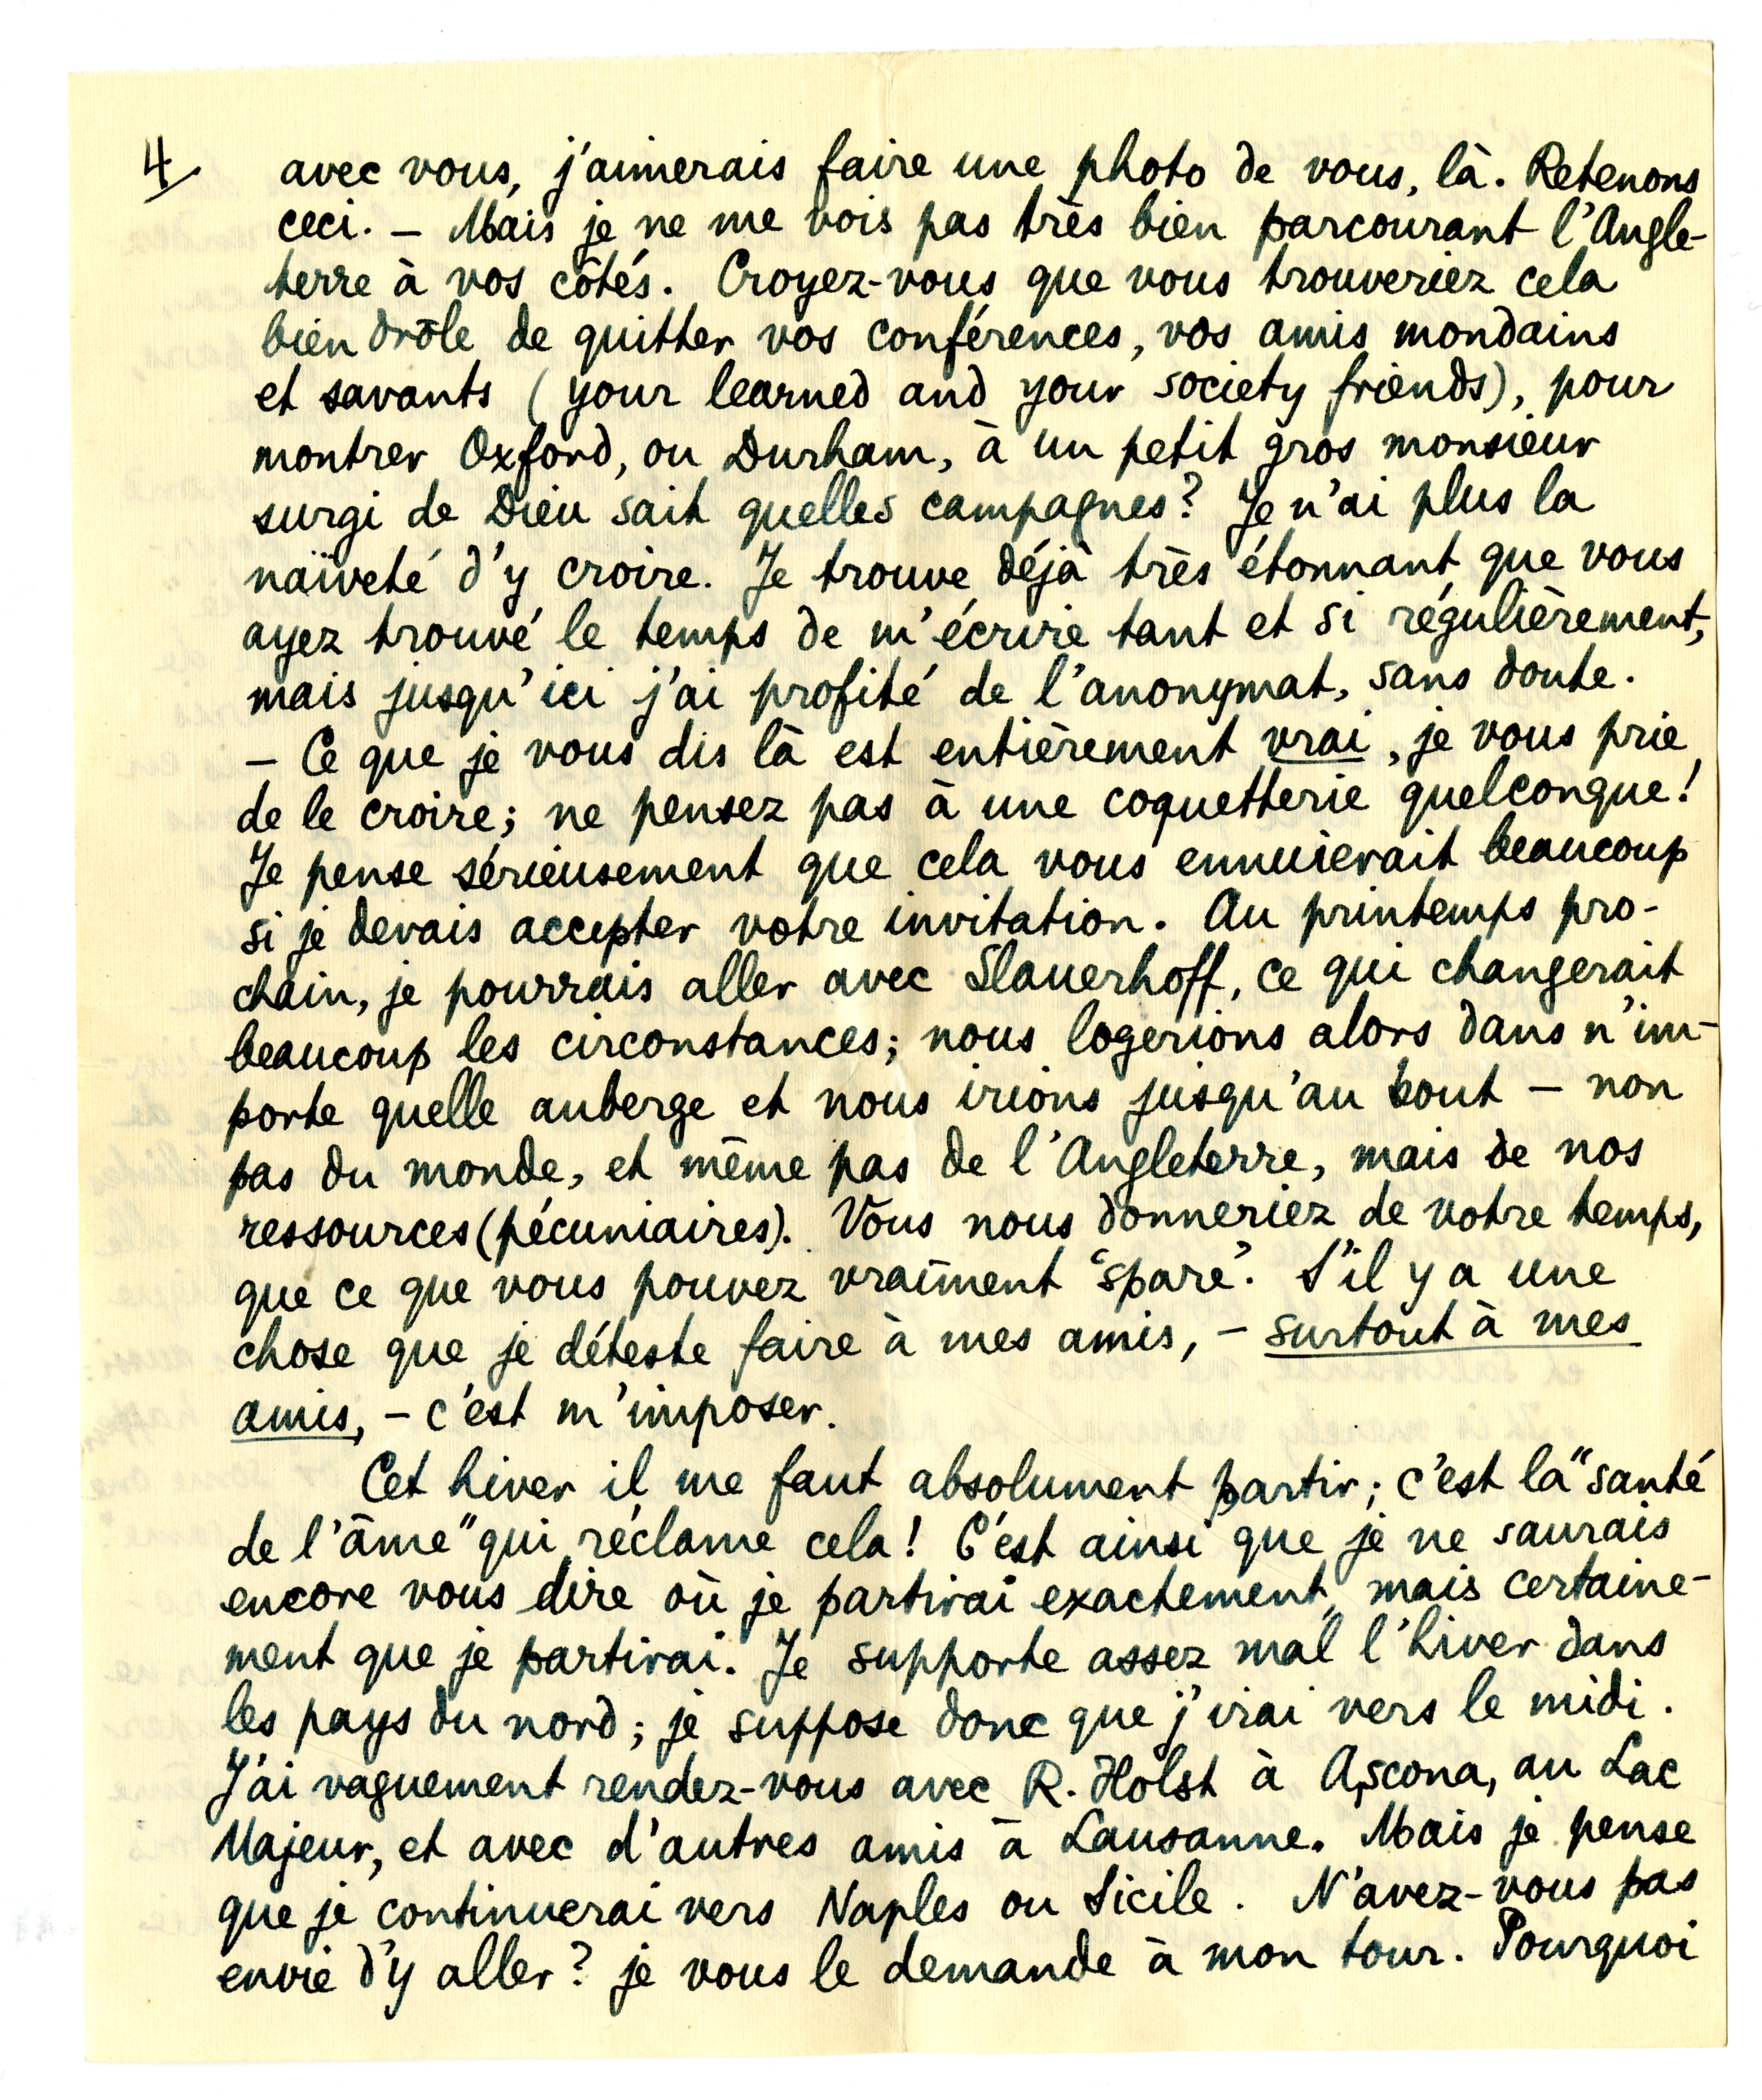 4/ avec vous, j'aimerais faire une photo de vous, là. Retenons
ceci. – Mais je ne me vois pas très bien parcourant l'Angle-
terre à vos côtés. Croyez-vous que vous trouveriez cela
bien drôle de quitter vos conférences, vos amis mondains
et savants (your learned and your society friends), pour
montrer Oxford, ou Durham, à un petit gros monsieur
surgi de Dieu sait quelles campagnes? Je n'ai plus la
naïveté d'y croire. Je trouve déjà très étonnant que vous
ayez trouvé le temps de m'écrire tant et si régulièrement,
mais jusqu'ici j'ai profité de l'anonymat, sans doute.
– Ce que je vous dis là est entièrement vrai, je vous prie
de le croire; ne pensez pas à une coquetterie quelconque!
Je pense sérieusement que cela vous ennuierait beaucoup
si je devais accepter votre invitation. Au printemps pro-
chain, je pourrais aller avec Slauerhoff, ce qui changerait
beaucoup les circonstances; nous logerions alors dans n'im-
porte quelle auberge et nous irions jusqu'au bout – non
pas du monde, et même pas de l'Angleterre, mais de nos
ressources (pécuniaires). Vous nous donneriez de votre temps,
que ce que vous pouvez vraiment "spare". S'il y a une
chose que je déteste faire à mes amis, – surtout à mes
amis, – c'est m'imposer.
Cet hiver il me faut absolument partir; c'est la "santé
de l'âme" qui réclame cela! C'est ainsi que je ne saurais
encore vous dire où je partirai exactement, mais certaine-
ment que je partirai. Je supporte assez mal l'hiver dans
les pays du nord; je suppose donc que j'irai vers le midi.
J'ai vaguement rendez-vous avec R. Holst à Ascona, au Lac
Majeur, et avec d'autres amis à Lausanne. Mais je pense
que je continuerai vers Naples ou Sicile. N'avez-vous pas
envie d'y aller? je vous le demande à mon tour. Pourquoi